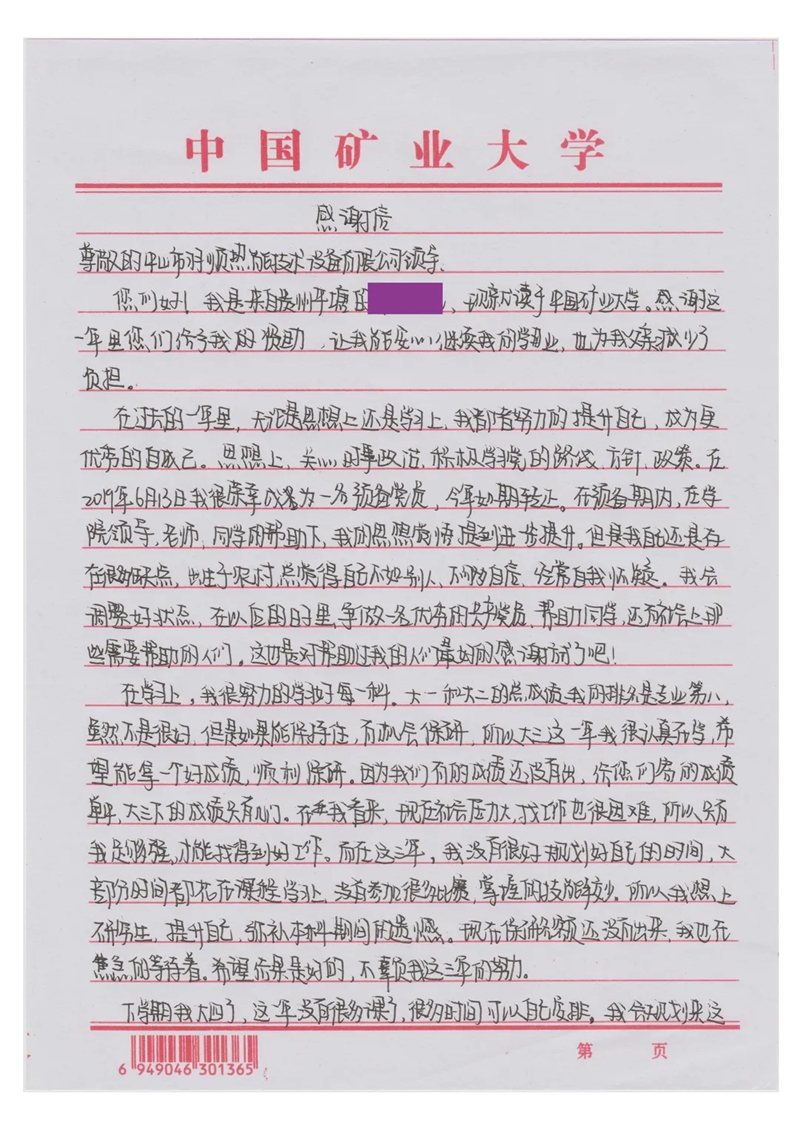 中国矿业大学
感谢信
尊敬的中山市好顺热能技术设备有限公司领导:
您们好!我是来自贵州平塘的、现就读于中国矿业大学。感谢这
一年里您们给予我的资助,让我能安心继续我的学业,也为我家减少了
负担。
在过去的一年里,无论是思想上还是学习上,我都有努力的提升自己,成为更
优秀的自己。思想上,关心时事政治,积极学习党的路线、方针、政策。在
2019年6月13日我很荣幸成为一名预备党员,今年如期转正。在预备期内,在学
院领导,老师,同学的帮助下,我的思想觉悟得到进一步提升。但是我自己还是存
在很多缺点,出生于农村,总觉得自己不如别人,不够自信,经常自我怀疑。我会
调整好状态,在以后的日子里,争做一名优秀的共产党员、帮助同学,还有社会上那
些需要帮助的人们。这也是对帮助过我的人们最好的感谢方式了吧!
在学习上,我很努力的学好每一科。大一和大二的总成绩我的排名是专业第八,
虽然不是很好,但是如果能保持住,有机会保研,所以大三这一年我很认真在学,希
望能拿一个好成绩,顺利保研。因为我们有的成绩还没有出,给您们寄的成绩
单中,大三下的成绩只有几门。在我看来,现在社会压力大,找工作也很困难,所以只有
我足够强,才能找得到好工作。而在这三年,我没有很好规划好自己的时间,大
部分时间都花在课程学习上,没有参加很多比赛,掌握的技能较少。所以我想上
研究生,提升自己,弥补本科期间的遗憾。现在保研名额还没有出来,我也在
焦急的等待着。希望结果是好的,不辜负我这三年的努力。
下学期我大四了,这一年没有很多课了,很多时间可以自己安排。我会规划来这
6 949046 301365
第 页